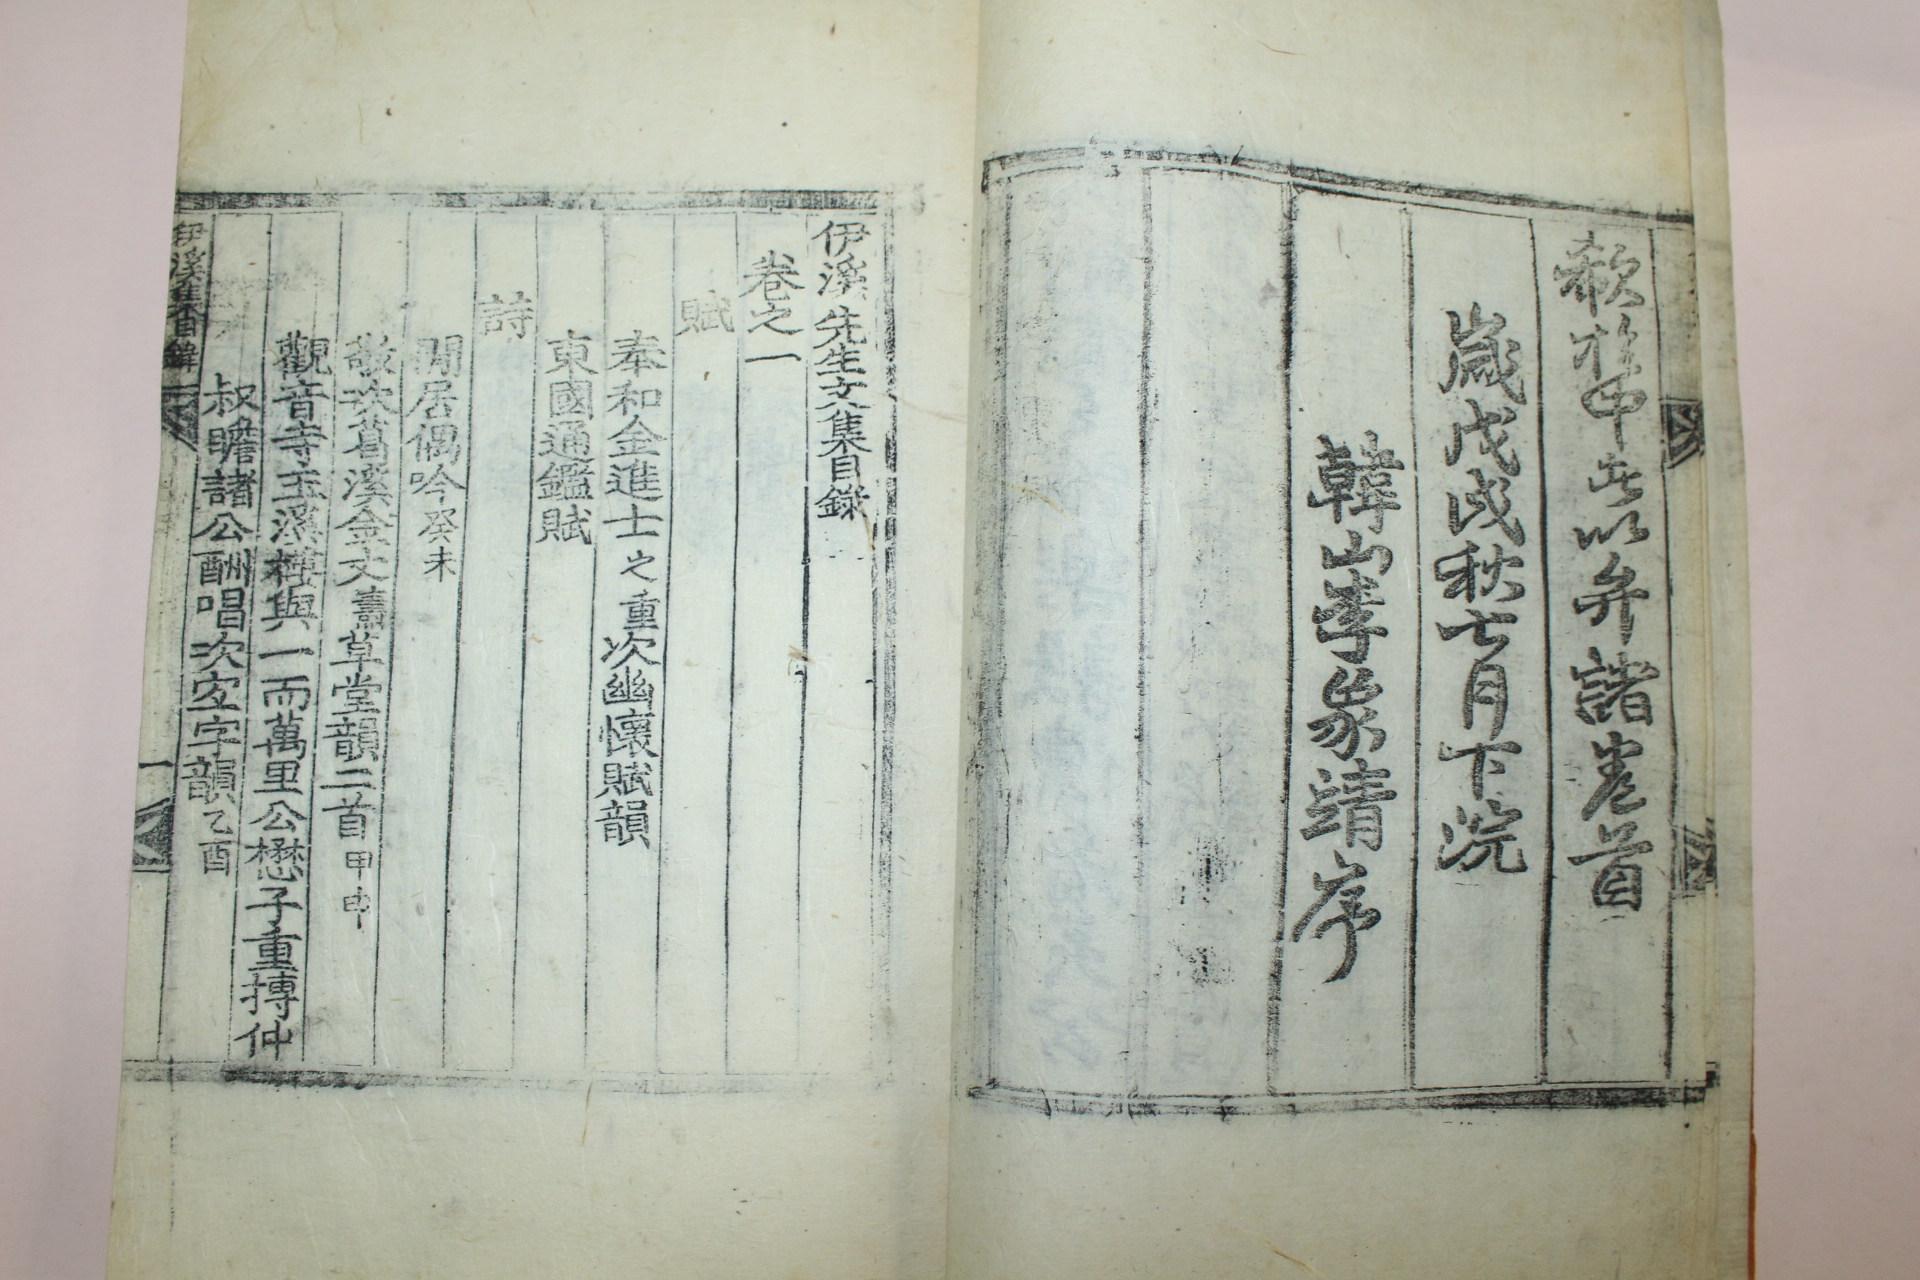 歲戊戌秋七月下浣
韓山李象靖序
伊溪先生文集目錄
卷之一
賦
奉和金進士之重次幽懷賦韻
東國通鑑賦
詩
閒居偶吟癸未
敬次葛溪金丈燾草堂韻二首甲申
觀音寺玉溪樓與一而萬里公懋子重摶仲
叔瞻諸公酬唱次字韻乙酉
伊溪集目錄
一